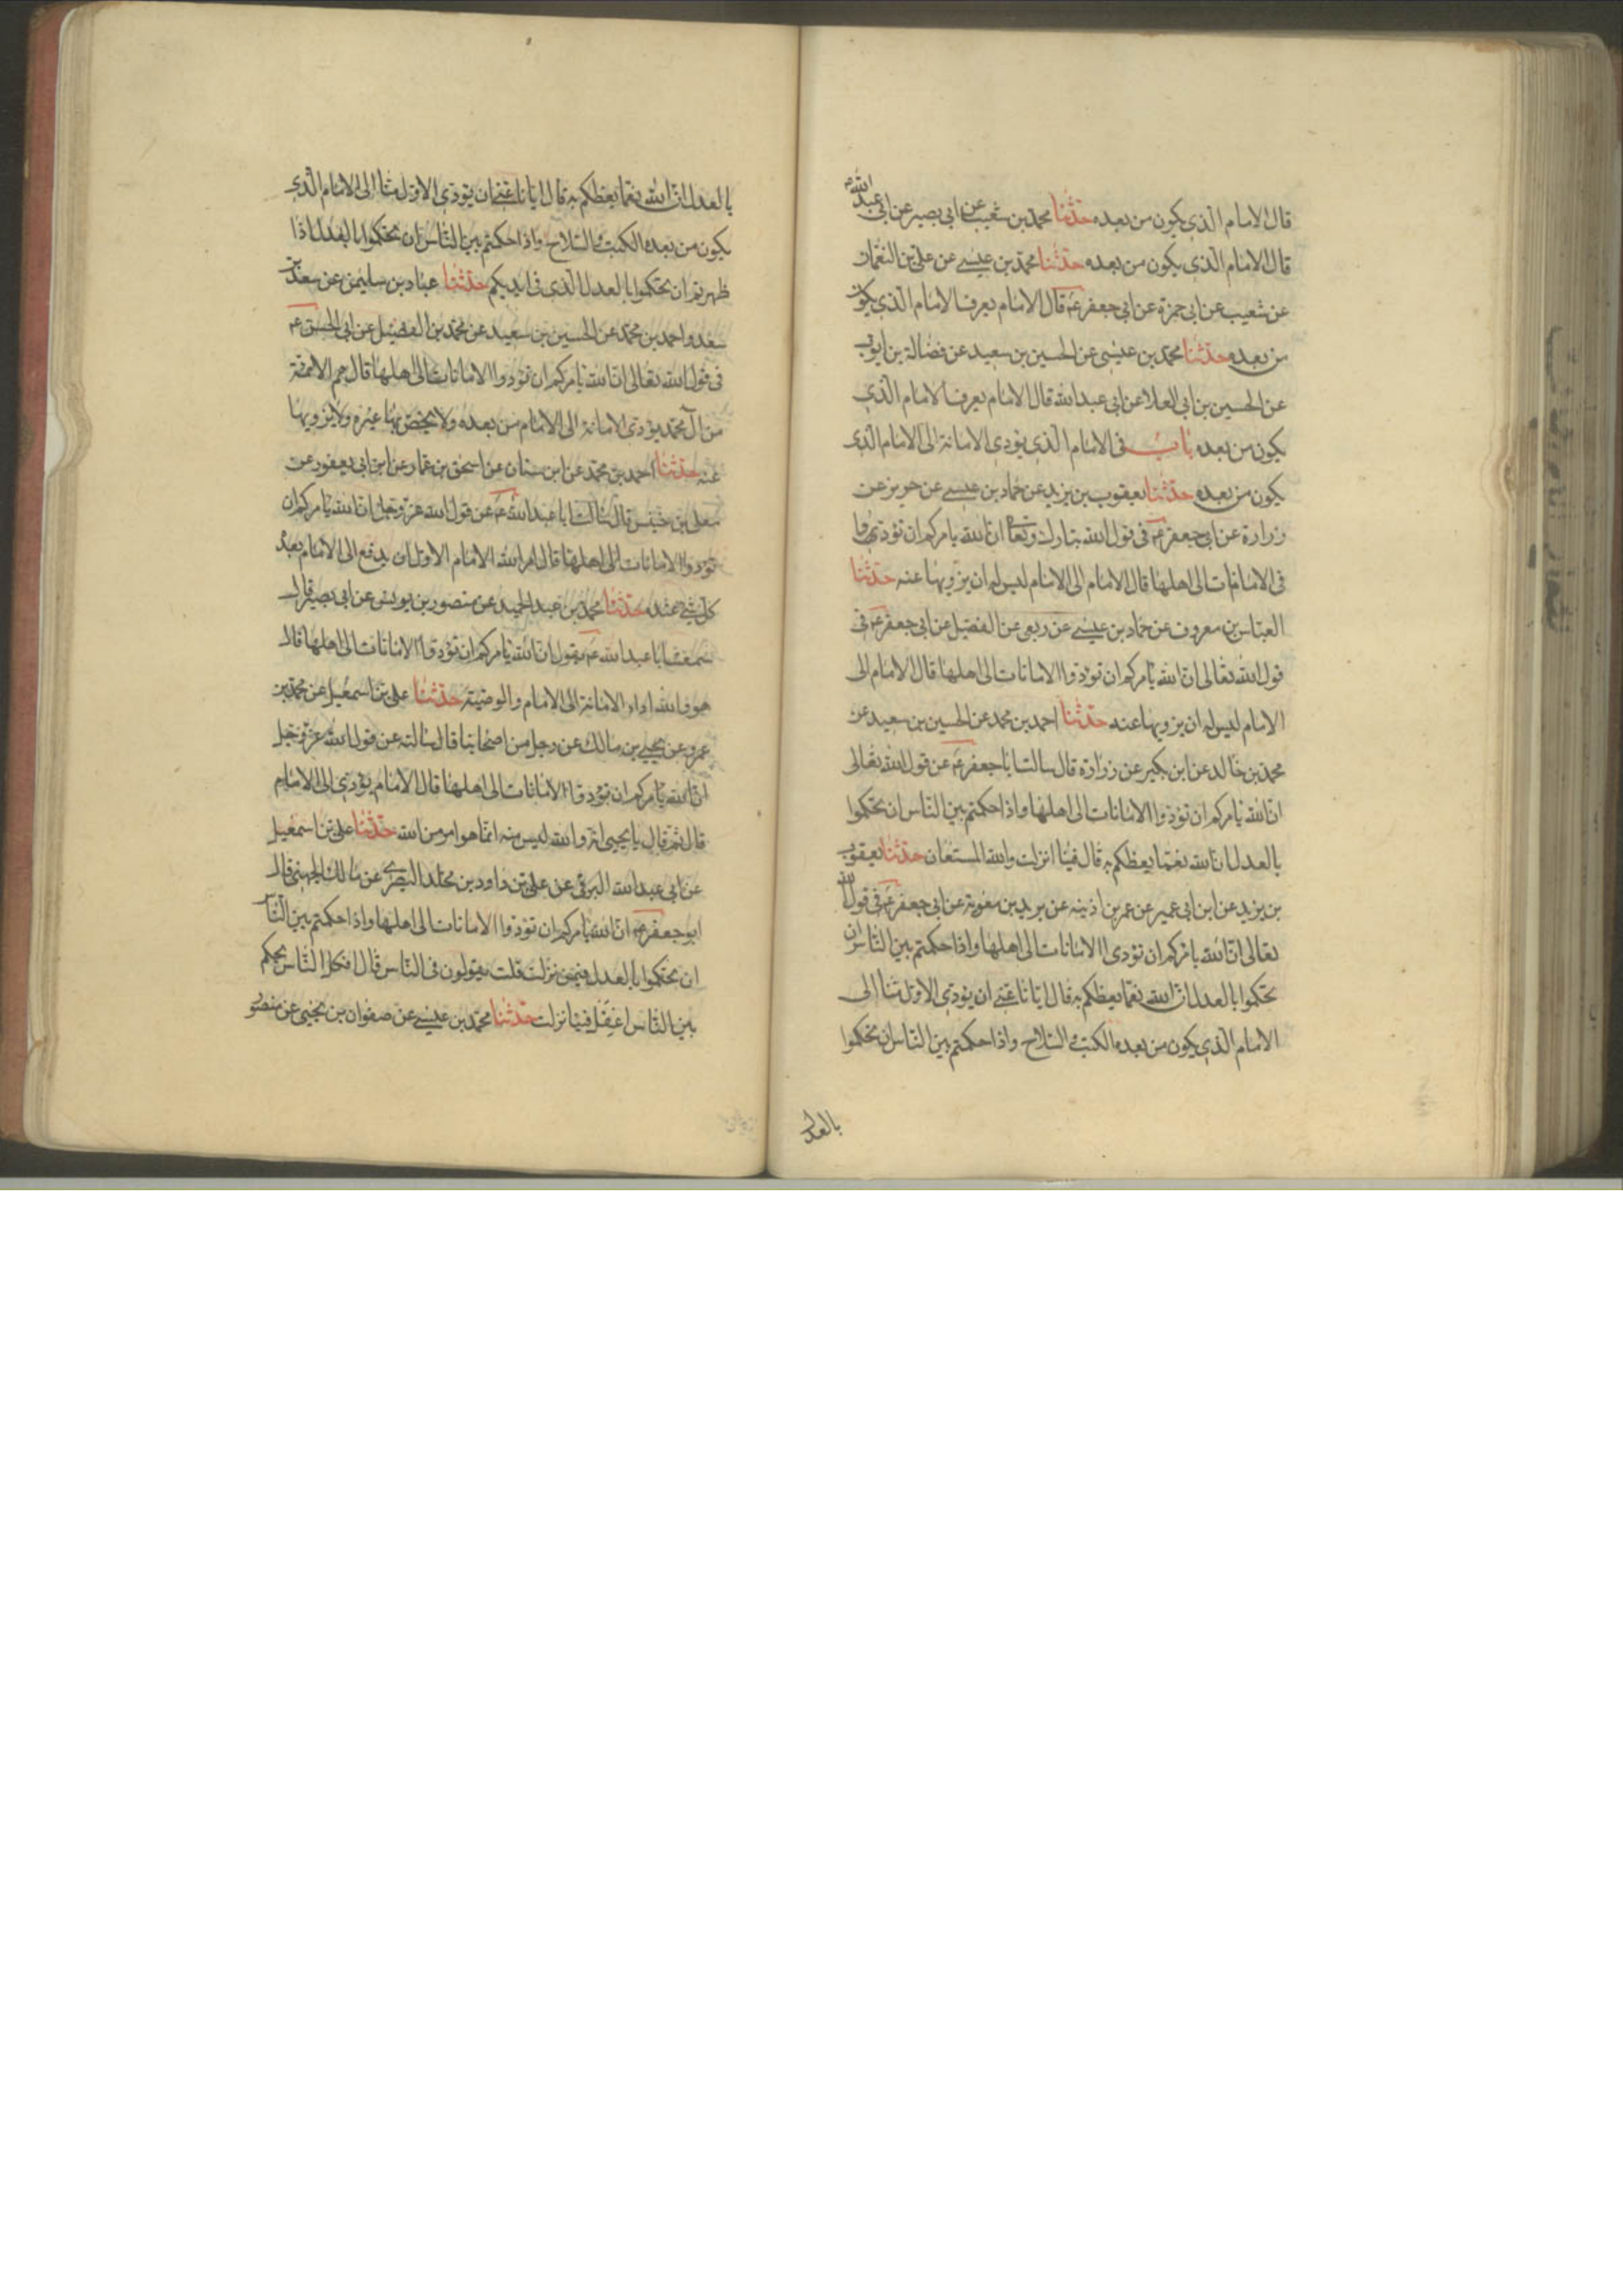 قال الامام الذي يكون من بعده حدثنا محمد بن شعيب عن ابي بصير عن ابي عبد الله
قال الامام الذي يكون من بعده حدثنا محمد بن عيسى عن علي بن النعمان
عن شعيب عن ابي حمزة عن ابي جعفر عم قال الامام يعرف الامام الذي يكون
من بعده حدثنا محمد بن عيسى عن الحسين بن سعيد عن فضالة بن ايوب
عن الحسين بن ابي العلا عن ابي عبد الله قال الامام يعرف الامام الذي
يكون من بعده باب في الامام الذي يودي الامانة الى الامام الذي
يكون من بعده حدثنا يعقوب بن يزيد عن حماد بن عيسى عن حريز عن
زرارة عن ابي جعفر عم في قول الله تبارك وتعا ان الله يامركم ان تؤدوا
الامانات الى اهلها قال الامام الى الامام ليس له ان يزويها عنه حدثنا
العباس بن معروف عن حماد بن عيسى عن ربعي عن الفضيل عن ابي جعفر عم في
قول الله تعالى ان الله يامركم ان تؤدوا الامانات الى اهلها قال الامام الى
الامام ليس له ان يزويها عنه حدثنا احمد بن محمد عن الحسين بن سعيد عن
محمد بن خالد عن ابن بكير عن زرارة قال سالت ابا جعفر عم عن قول الله تعالى
ان الله يامركم ان تؤدوا الامانات الى اهلها واذا حكمتم بين الناس ان تحكموا
بالعدل ان الله نعما يعظكم به قال فينا انزلت والله المستعان حدثنا يعقوب
بن يزيد عن ابن ابي عمير عن عمر بن اذينه عن بريد بن معوية عن ابي جعفر عم في قول الله
تعالى ان الله يامركم ان تؤدى الامانات الى اهلها واذا حكمتم بين الناس ان
تحكموا بالعدل ان الله نعما يعظكم به قال ايانا عنى ان يؤدي الاول منا الى
الامام الذي يكون من بعده الكتب و السلاح واذا حكمتم بين الناس ان تحكموا
بالعدل
بالعدل ان الله نعما يعظكم به قال ايانا عنى ان يؤدي الاول منا الى الامام الذي
يكون من بعده الكتب و السلاح واذا حكمتم بين الناس ان تحكموا بالعدل اذا
ظهرتم ان تحكموا بالعدل الذي في ايديكم حدثنا عباد بن سليمن عن سعد بن
سعد واحمد بن محمد عن الحسين بن سعيد عن محمد بن الفضيل عن ابي الحسن عم
في قول الله تعالى ان الله يامركم ان تؤدوا الامانات الى اهلها قال هم الائمة
من آل محمد يؤدي الامانة الى الامام من بعده ولا يخص بها غيره ولا يزويها
عنه حدثنا احمد بن محمد عن ابن سنان عن اسحق بن عمار عن ابن ابي يعفور عن
معلى بن خنيس قال سالت ابا عبد الله عم عن قول الله عز وجل ان الله يامركم ان
تؤدوا الامانات الى اهلها قال امر الله الامام الاول ان يدفع الى الامام بعده
كل شي عنده حدثنا محمد بن عبد الحميد عن منصور بن يونس عن ابي بصير قال
سمعت ابا عبد الله عم يقول ان الله يامركم ان تؤدوا الامانات الى اهلها قال
هو والله اداء الامانة الى الامام والوصية حدثنا علي بن اسمعيل عن محمد بن
عمرو عن يحيى بن مالك عن رجل من اصحابنا قال سالته عن قول الله عز وجل
ان الله يامركم ان تؤدوا الامانات الى اهلها قال الامام يؤدي الى الامام
قال ثم قال يا يحيى انه والله ليس منه انما هو امر من الله حدثنا علي بن اسمعيل
عن ابي عبد الله البرقي عن علي بن داود بن مخلد البصري عن مالك الجهني قال
ابو جعفر عم ان الله يامركم ان تؤدوا الامانات الى اهلها واذا حكمتم بين الناس
ان تحكموا بالعدل فيمن نزلت قلت يقولون في الناس قال افكل الناس يحكم
بين الناس اعقل فينا نزلت حدثنا محمد بن عيسى عن صفوان بن يحيى عن منصور